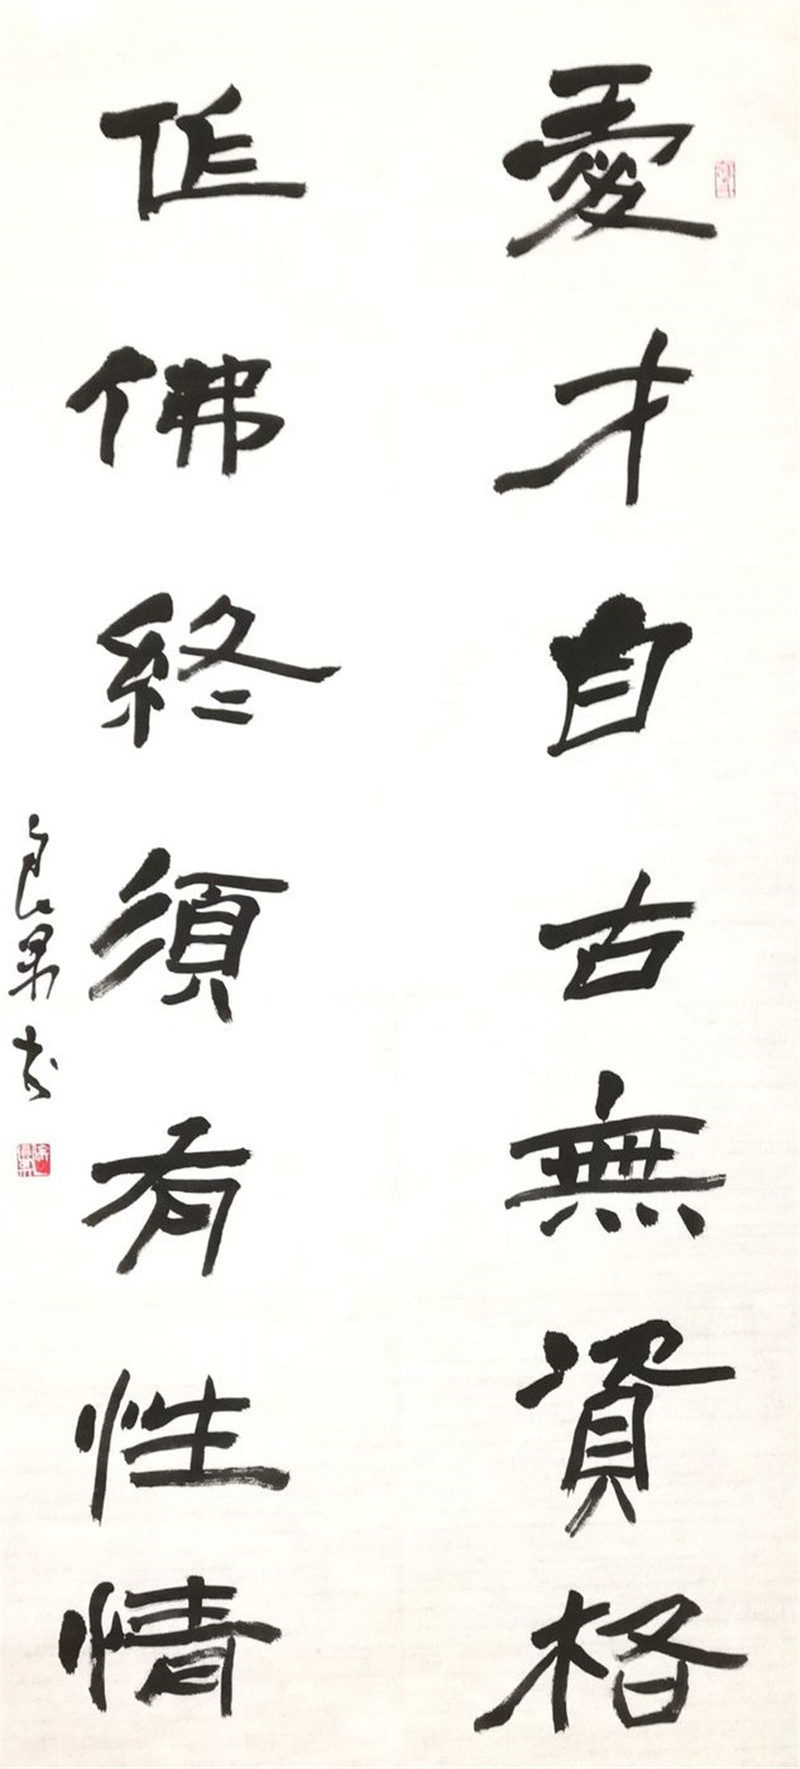 愛才自古無資格
作佛終須有性情
良㫧书